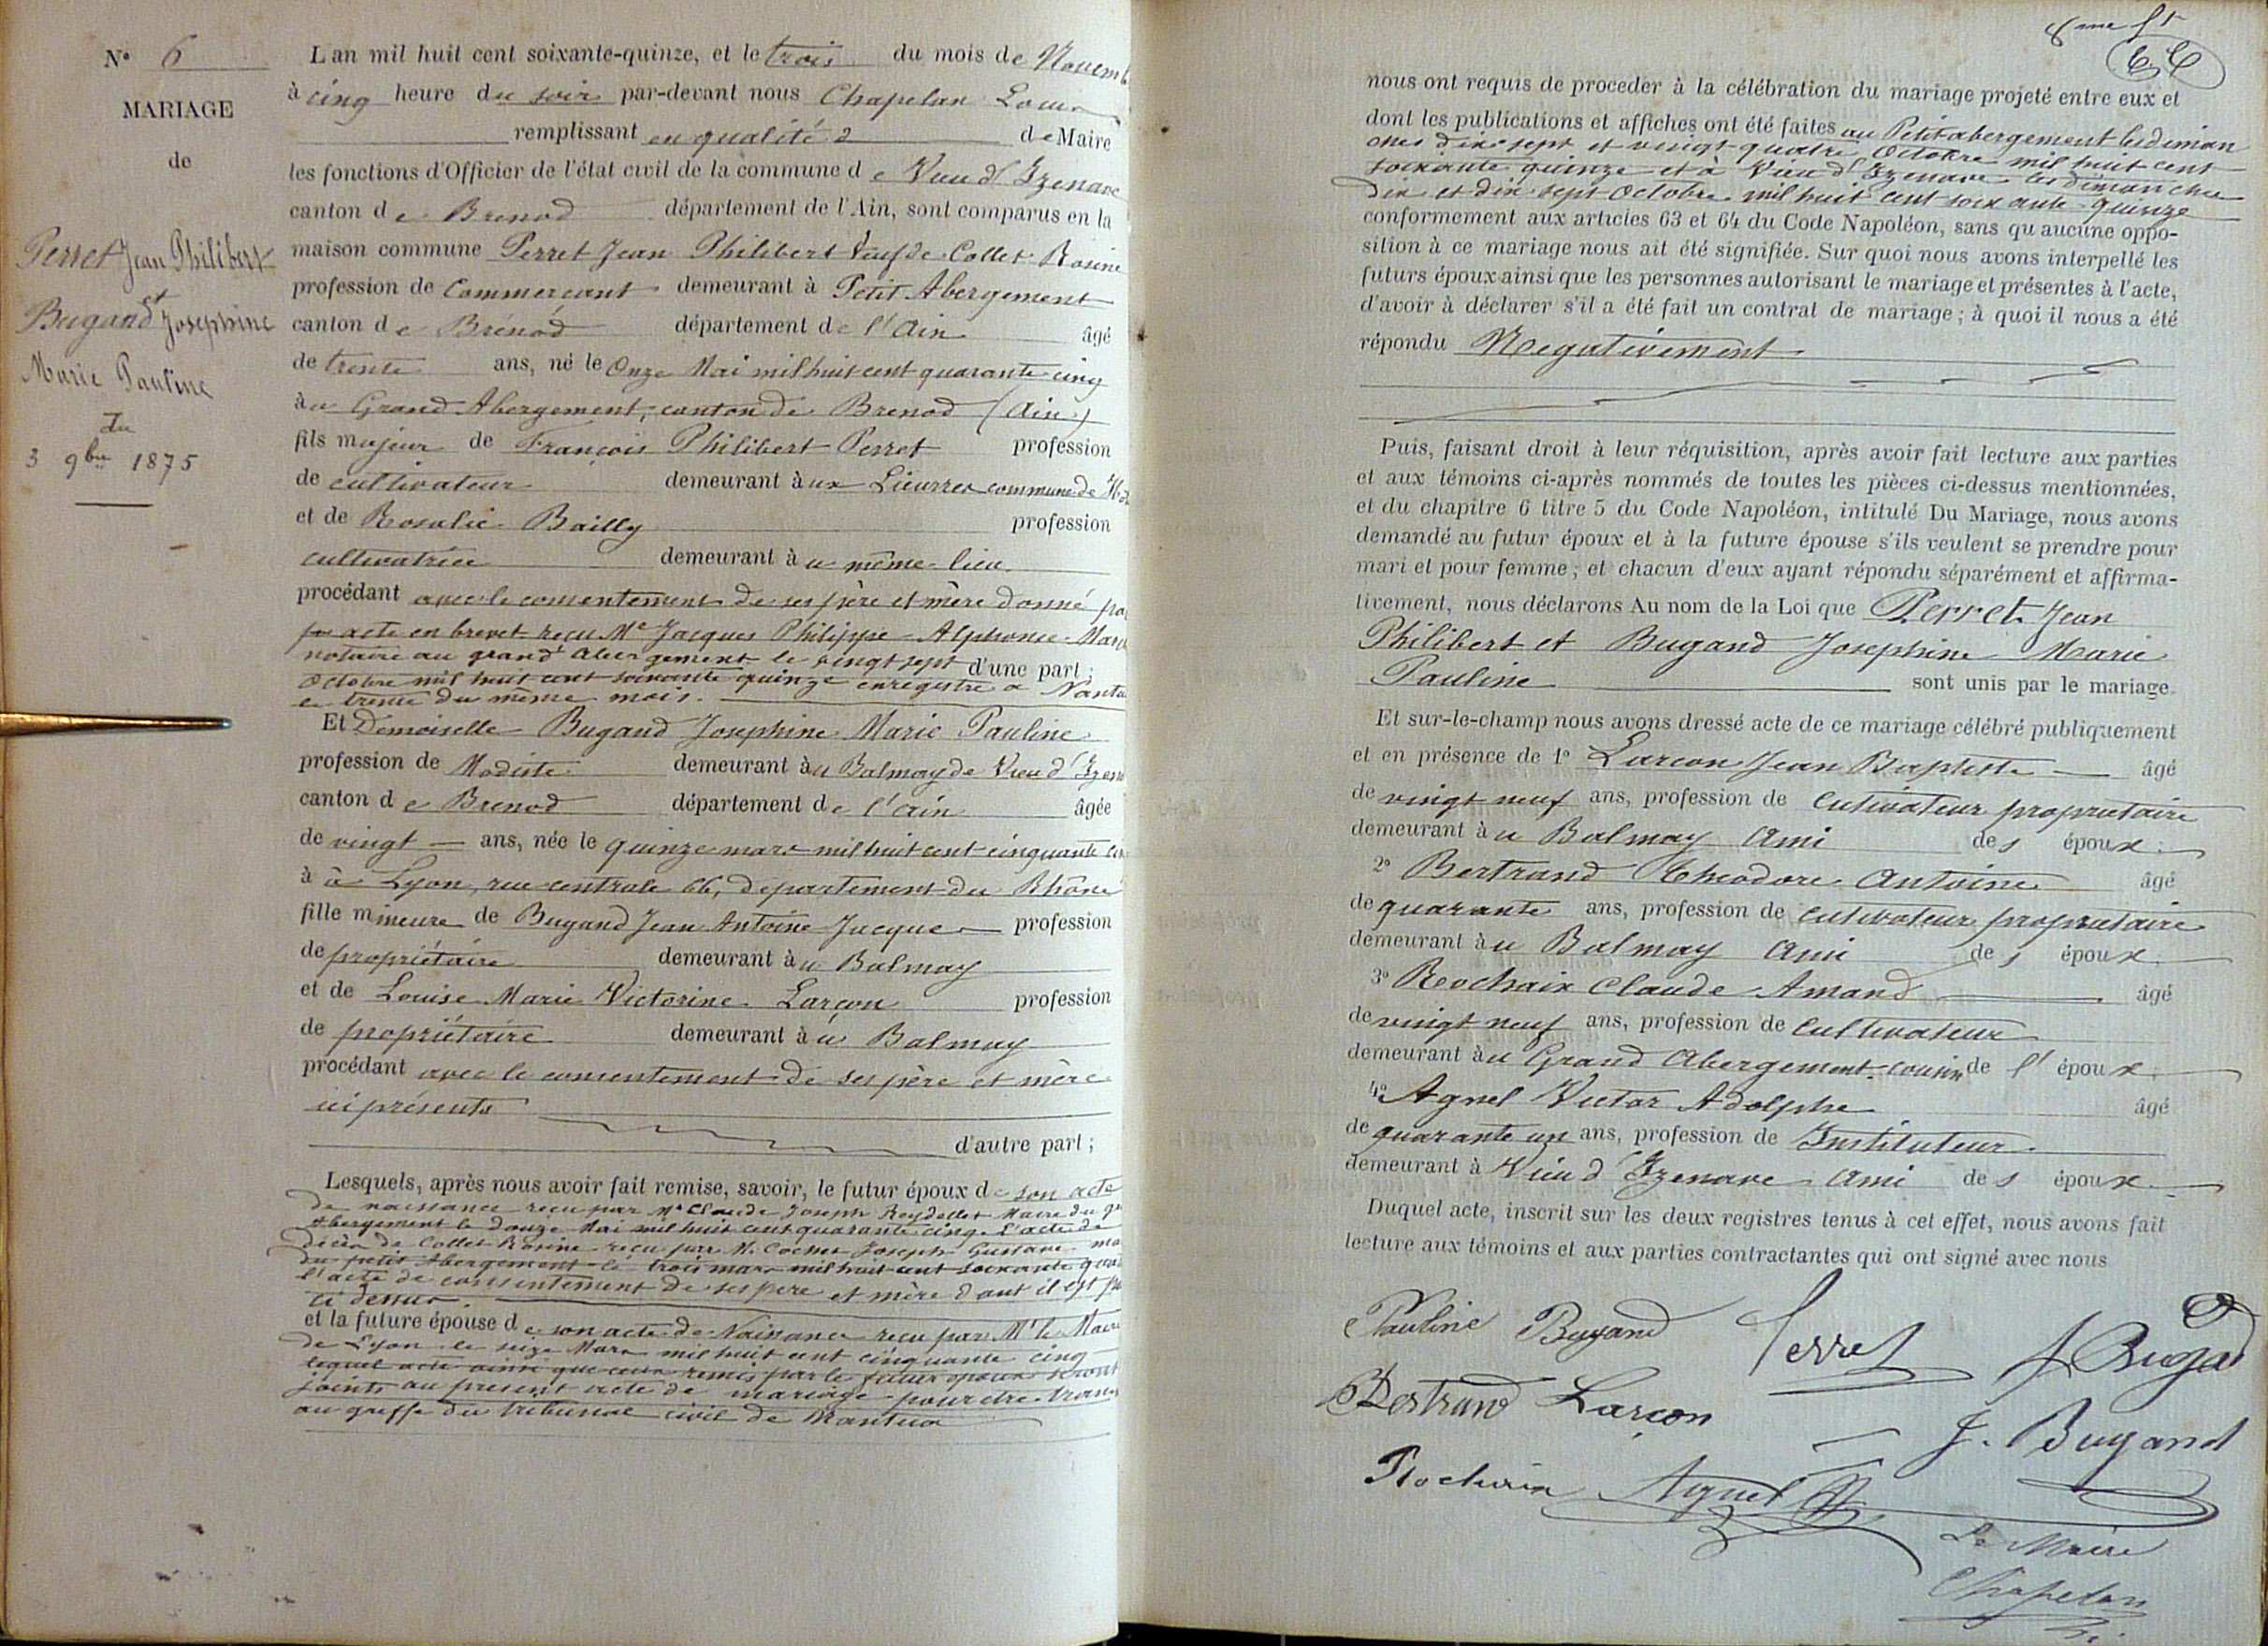 N° 6
MARIAGE
de
Perret Jean Philibert
et
Bugand Josephine
Marie Pauline
du
3 9bre 1875
L'an mil huit cent soixante-quinze, et le trois du mois de Novemb
à cinq heure du soir par-devant nous Chapelan Louis
remplissant en qualité de Maire
les fonctions d'Officier de l'état civil de la commune de Vieu d'Izenave
canton de Brenod département de l'Ain, sont comparus en la
maison commune Perret Jean Philibert Veuf de Collet Rosine
profession de Commerçant demeurant à Petit Abergement
canton de Brénod département de l'Ain âgé
de trente ans, né le Onze Mai mil huit cent quarante cinq
àu Grand Abergement, canton de Brenod (Ain)
fils majeur de François Philibert Perret profession
de cultivateur demeurant àux Lieurres commune de
et de Rosalie Bailly profession
cultivatrice demeurant àu même lieu
procédant avec le consentement de ses père et mère donné
acte en brevet reçu Me Jacques Philippe Alphonse
notaire au grand Abergement le vingt sept d'une part ;
Octobre mil huit cent soixante quinze enregistré à Nantua
le trente du même mois.
Et Demoiselle Bugand Josephine Marie Pauline
profession de Modiste demeurant àu Balmay de Vieu d'Izen
canton de Brenod département de l'Ain âgée
de vingt ans, née le quinze mars mil huit cent cinquante cin
à à Lyon, rue centrale 66, département du Rhône
fille mineure de Bugand Jean Antoine Jacques profession
de propriétaire demeurant àu Balmay
et de Louise Marie Victorine Larçon profession
de propriétaire demeurant àu Balmay
procédant avec le consentement de ses père et mère
ici présents
d'autre part ;
Lesquels, après nous avoir fait remise, savoir, le futur époux de son acte
de naissance reçu par Mr Claude Joseph Reydellet Maire du gr
Abergement le douze Mai mil huit cent quarante cinq. L'acte de
décès de Collet Rosine reçu par M. Cochet Joseph Gustave ma
du petit Abergement le trois mars mil huit cent soixante
l'acte de consentement de ses père et mère dont il est
ci dessus.
et la future épouse de son acte de Naissance reçu par Mr le Maire
de Lyon le seize Mars mil huit cent cinquante cinq
lequel acte ainsi que ceux remis par le futur époux seront
joints au présent acte de mariage pour être
au greffe du tribunal civil de Nantua
nous ont requis de proceder à la célébration du mariage projeté entre eux et
dont les publications et affiches ont été faites au Petit abergement les diman
ches dix sept et vingt-quatre Octobre mil huit cent
soixante quinze et à Vieu d'Izenave les dimanches
dix et dix sept Octobre mil huit cent soixante quinze
conformement aux articles 63 et 64 du Code Napoléon, sans qu'aucune oppo-
sition à ce mariage nous ait été signifiée. Sur quoi nous avons interpellé les
futurs époux ainsi que les personnes autorisant le mariage et présentes à l'acte,
d'avoir à déclarer s'il a été fait un contrat de mariage ; à quoi il nous a été
répondu Negativement
Puis, faisant droit à leur réquisition, après avoir fait lecture aux parties
et aux témoins ci-après nommés de toutes les pièces ci-dessus mentionnées,
et du chapitre 6 titre 5 du Code Napoléon, intitulé Du Mariage, nous avons
demandé au futur époux et à la future épouse s'ils veulent se prendre pour
mari et pour femme ; et chacun d'eux ayant répondu séparément et affirma-
tivement, nous déclarons Au nom de la Loi que Perret Jean
Philibert et Bugand Josephine Marie
Pauline sont unis par le mariage.
Et sur-le-champ nous avons dressé acte de ce mariage célébré publiquement
et en présence de 1° Larcon Jean Baptiste âgé
de vingt neuf ans, profession de Cultivateur propriétaire
demeurant àu Balmay Ami des époux.
2° Bertrand Theodore Antoine âgé
de quarante ans, profession de Cultivateur propriétaire
demeurant àu Balmay Ami des époux.
3° Rochaix Claude Amand âgé
de vingt neuf ans, profession de Cultivateur
demeurant àu Grand Abergement cousin de l'époux.
4° Agnel Victor Adolphe âgé
de quarante un ans, profession de Instituteur.
demeurant à Vieu d'Izenave Ami des époux.
Duquel acte, inscrit sur les deux registres tenus à cet effet, nous avons fait
lecture aux témoins et aux parties contractantes qui ont signé avec nous
Pauline Bugand Perret J Bugand
Bertrand Larçon J. Bugand
Rochaix Agnel
Le Maire
Chapelan